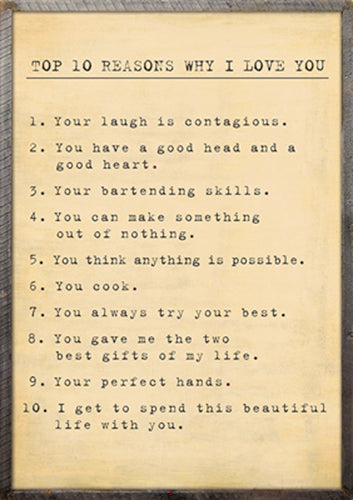 TOP 10 REASONS WHY I LOVE YOU
1. Your laugh is contagious.
2. You have a good head and a
good heart.
3. Your bartending skills.
4. You can make something
out of nothing.
5. You think anything is possible.
6. You cook.
7. You always try your best.
8. You gave me the two
best gifts of my life.
9. Your perfect hands.
10. I get to spend this beautiful
life with you.